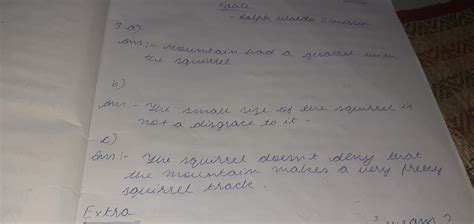 Fable
- Ralph Waldo Emerson
9 a)
Ans:- Mountain had a quarrel with
the squirrel
b)
Ans:- The small size of the squirrel is
not a disgrace to it.
c)
Ans:- The squirrel doesn't deny that
the mountain makes a very pretty
squirrel track.
Extra